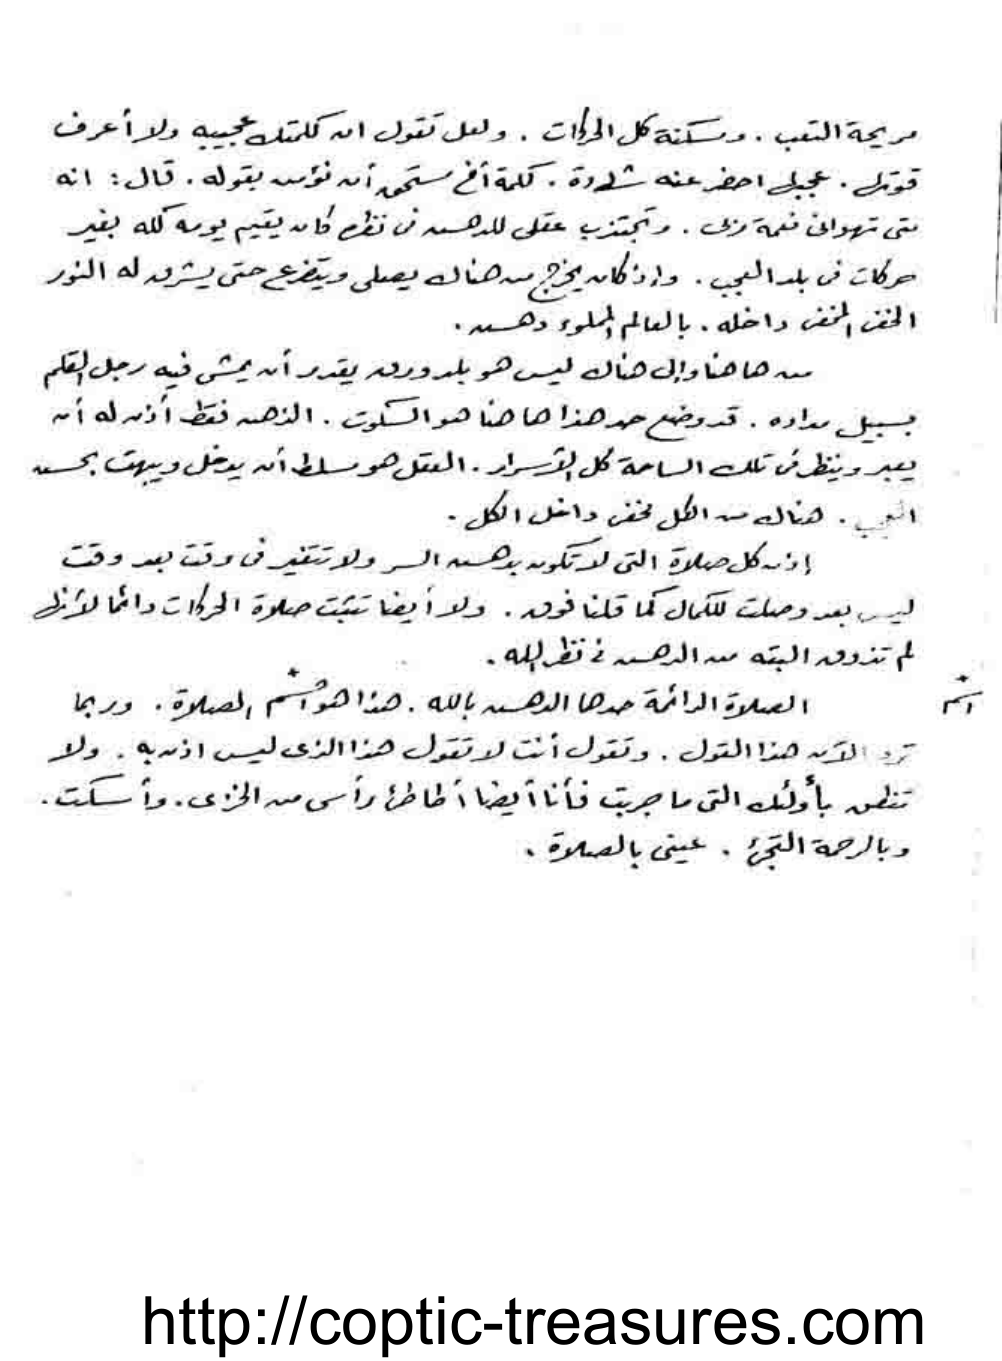 مريحة التعب . ومسكنة كل الحركات . ولعل تقول ان كلمتك عجيبه ولا أعرف
قوتها . عجبها احضر عنه شهادة . كلمة أخ مستحق أن نؤمن بقوله . قال : انه
متى تهوانى نعمة ربى . وتجتذب عقلى للدهس فى نظره كان يقيم يومه كله بغير
حركات فى بلد العجب . وإذ كان يخرج من هناك يصلى ويتضرع حتى يشرق له النور
الخفى المخفى داخله . بالعالم المملوء دهس .
من هاهنا وإلى هناك ليس هو بلد ورق يقدر أن يمشى فيه رجل القلم
بسبيل مداده . قد وضع حد هذا هاهنا هو السكوت . الذهن فقط أذن له أن
يعبر وينظر فى تلك الساحة كل الأسرار . العقل هو مسلط أن يدخل ويبهت بحسن
العجب . هناك من الكل مخفى داخل الكل .
إذن كل صلاة التى لا تكون بدهس السر ولا تتغير فى وقت بعد وقت
ليس بعد وصلت للكمال كما قلنا فوق . ولا أيضا تثبت صلاة الحركات دائما لأنها
لم تذوق البته من الدهس فى نظر الله .
الصلاة الدائمة حدها الدهس بالله . هذا هو اسم* الصلاة . وربما
اسم*
ترد الآن هذا القول . وتقول أنت لا تقول هذا الذى ليس اذن به . ولا
تنطق بأولئك التى ما جربت فأنا أيضا أطاطئ رأسى من الخزى . وأسكت .
وبالرحمة التجئ . عينى بالصلاة .
http://coptic-treasures.com